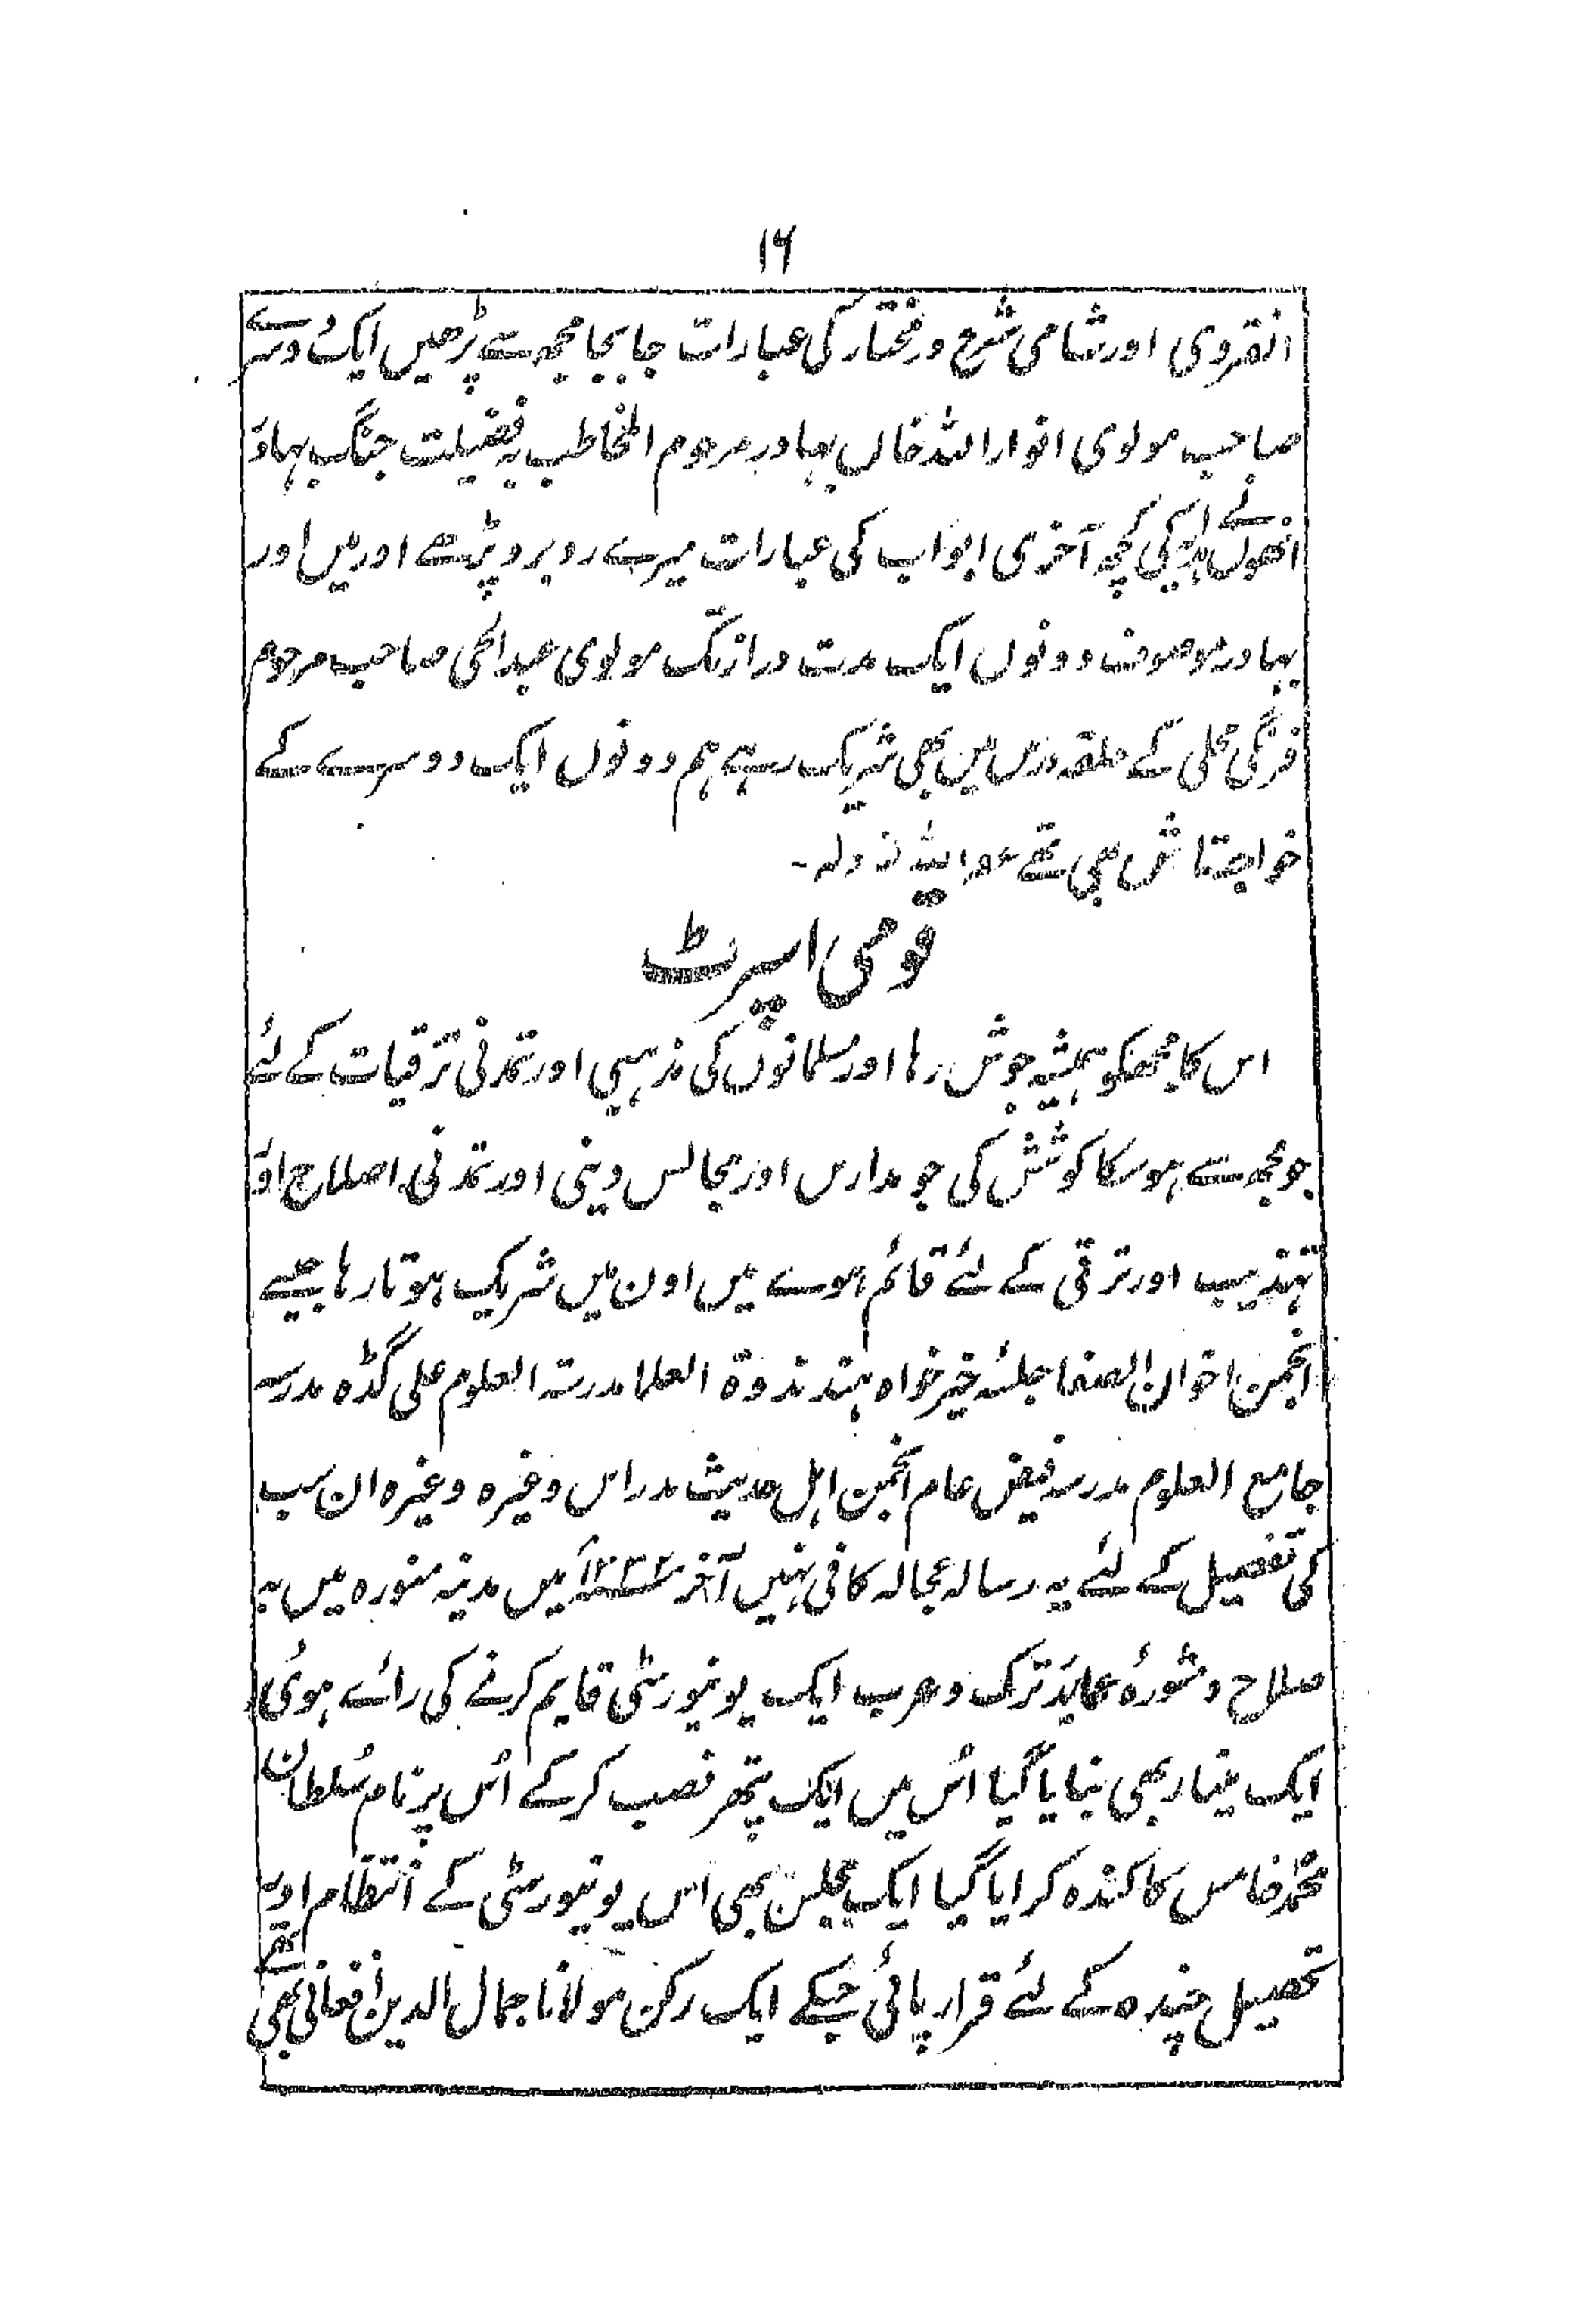 ۱۶
انقروی اور شامی شرح درمختار کی عبارات جابجا مجھ سے پڑھیں ایک دوسرے
صاحب مولوی انوار اللہ خاں بہادر مرحوم المخاطب بہ فضیلت جنگ بہادر
انھوں نے ہدایہ کی کچھ آخری ابواب کی عبارات میرے روبرو پڑھے اور میں اور
بہادر موصوف دونوں ایک مدت دراز تک مولوی عبدالحی صاحب مرحوم
فرنگی محلی کے حلقہ درس میں بھی شریک رہے ہم دونوں ایک دوسرے کے
خواجہ تاش بھی تھے غفر اللہ لہ ولہ ۔
قومی اسپرٹ
اس کا مجھکو ہمیشہ جوش رہا اور مسلمانوں کی مذہبی اور تمدنی ترقیات کے لئے
جو مجھ سے ہو سکا کوشش کی جو مدارس اور مجالس دینی اور تمدنی اصلاح اور
تہذیب اور ترقی کے لئے قائم ہوے میں اون میں شریک ہوتا رہا جیسے
انجمن اخوان الصفا جلسۂ خیر خواہ ہند ندوۃ العلما مدرستہ العلوم علی گڈہ مدرسہ
جامع العلوم مدرسہ فیض عام انجمن اہل حدیث مدراس وغیرہ وغیرہ ان سب
کی تفصیل کے لئے یہ رسالہ عجالہ کافی نہیں آخر ۱۳۳۲ھ میں مدینہ منورہ میں بہ
صلاح و مشورۂ عمایدَ ترک و عرب ایک یونیورسٹی قایم کرنے کی رائے ہوئی
ایک مینار بھی بنایا گیا اُس میں ایک پتھر نصب کرکے اُس پر نام سُلطان
محمدؐ خامس کا کندہ کرایا گیا ایک مجلس بھی اس یونیورسٹی کے انتظام اور
تحصیل چندہ کے لئے قرار پائی جسکے ایک رکن مولانا جمال الدین افغانی بھی تھے